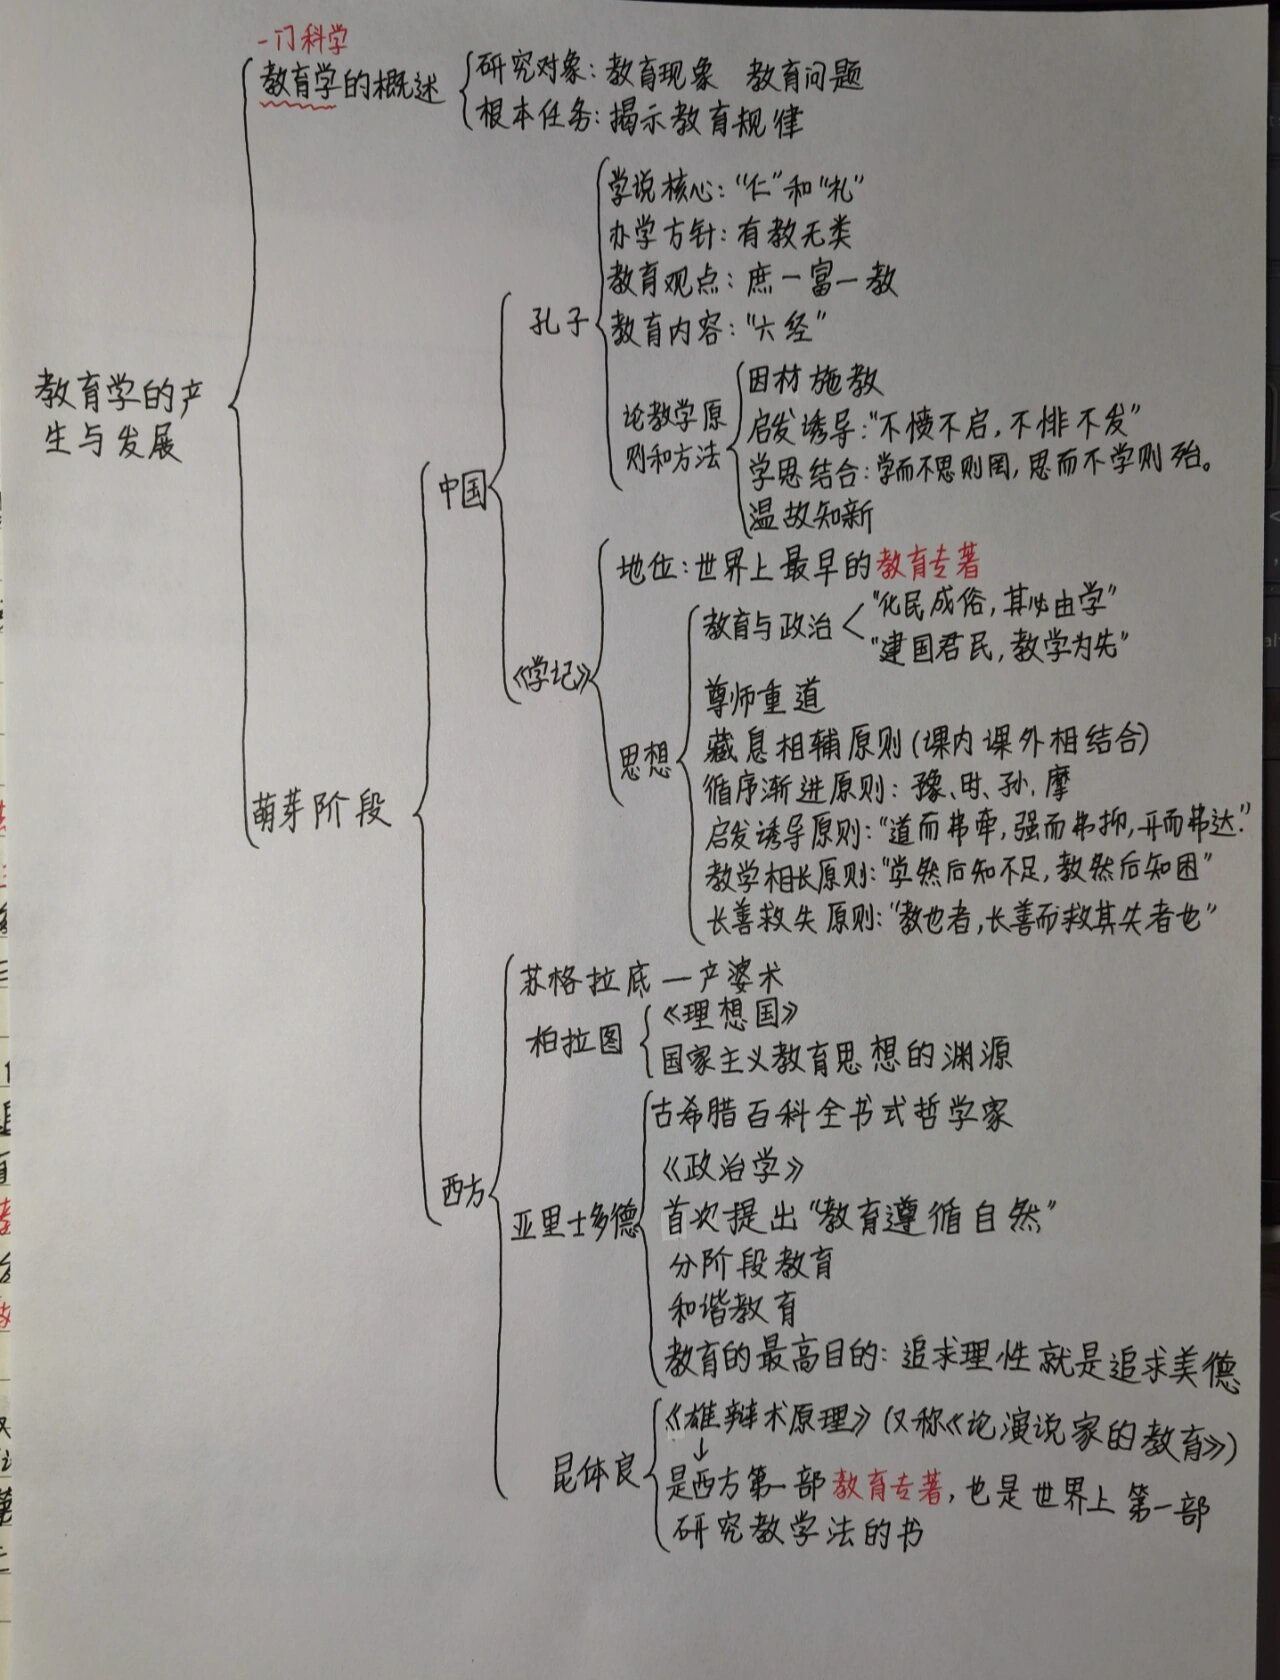 一门科学
教育学的概述
研究对象：教育现象 教育问题
根本任务：揭示教育规律
教育学的产
生与发展
萌芽阶段
中国
孔子
学说核心：“仁”和“礼”
办学方针：有教无类
教育观点：庶一富一教
教育内容：“六经”
论教学原
则和方法
因材施教
启发诱导：“不愤不启，不悱不发”
学思结合：学而不思则罔，思而不学则殆。
温故知新
《学记》
地位：世界上最早的教育专著
思想
教育与政治
“化民成俗，其必由学”
“建国君民，教学为先”
尊师重道
藏息相辅原则（课内课外相结合）
循序渐进原则：豫、时、孙、摩
启发诱导原则：“道而弗牵，强而弗抑，开而弗达.”
教学相长原则：“学然后知不足，教然后知困”
长善救失原则：“教也者，长善而救其失者也”
西方
苏格拉底 一产婆术
柏拉图
《理想国》
国家主义教育思想的渊源
亚里士多德
古希腊百科全书式哲学家
《政治学》
首次提出“教育遵循自然”
分阶段教育
和谐教育
教育的最高目的：追求理性就是追求美德
昆体良
《雄辩术原理》（又称《论演说家的教育》）
↓
是西方第一部教育专著，也是世界上第一部
研究教学法的书